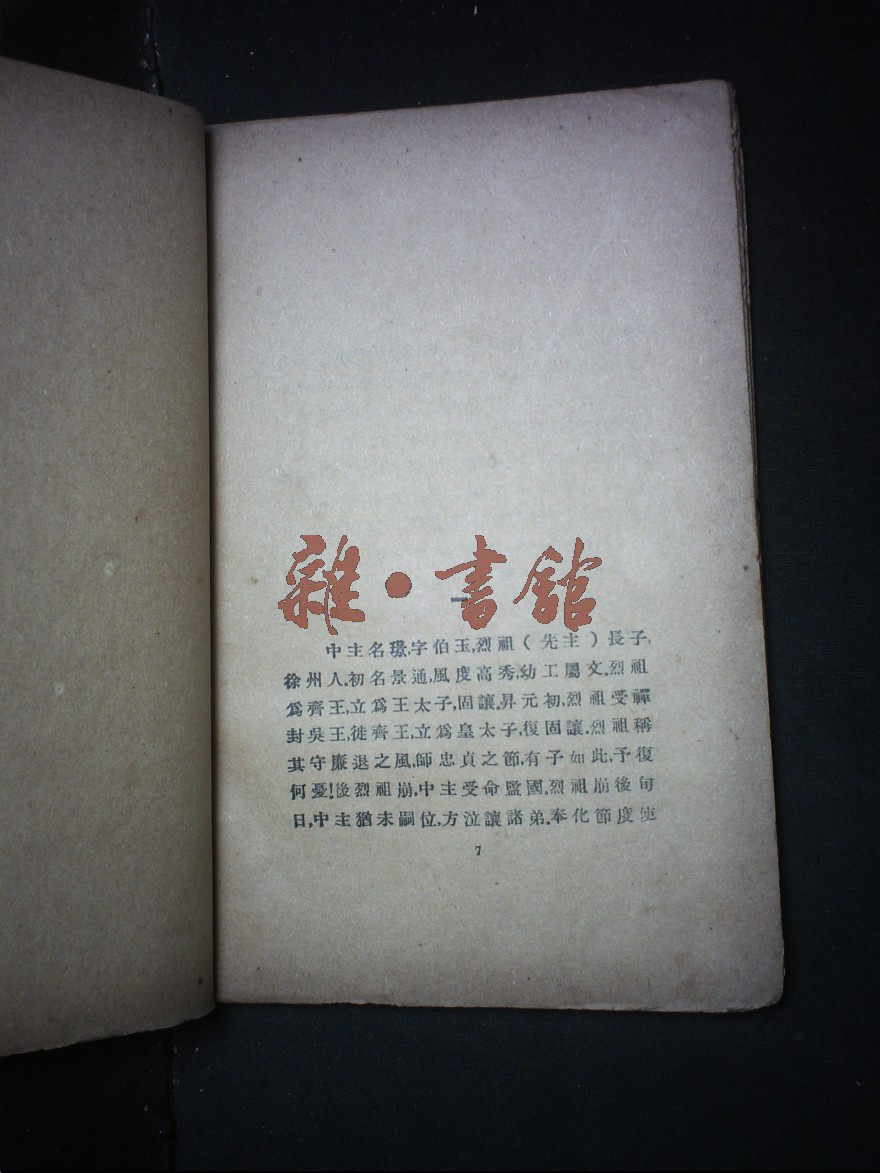 雜·書館
一
中主名璟,字伯玉,烈祖(先主)長子,
徐州人.初名景通,風度高秀,幼工屬文.烈祖
爲齊王,立爲王太子,固讓.昇元初,烈祖受禪
封吳王,徙齊王,立爲皇太子,復固讓.烈祖稱
其守廉退之風,師忠貞之節,有子如此,予復
何憂!後烈祖崩,中主受命監國.烈祖崩後旬
日,中主猶未嗣位,方泣讓諸弟.奉化節度使
7